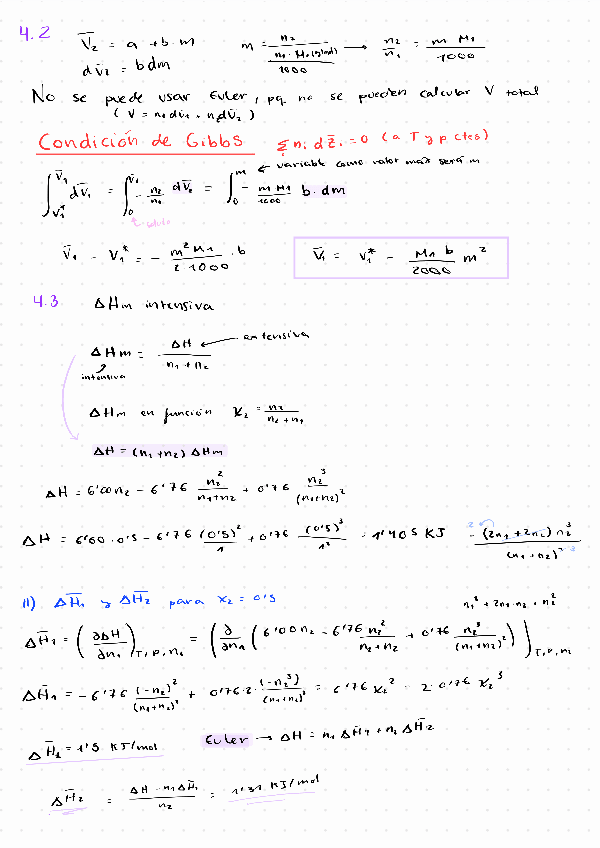 4.2 V̄₂ = a + b·m m = n₂ / (n₁·M₁(g/mol) / 1000) → n₂/n₁ = m M₁ / 1000
dV̄₂ = b dm
No se puede usar Euler, pq no se pueden calcular V total
( V = n₁dV₁ + n₂dV̄₂ )
Condición de Gibbs Σ nᵢ dZ̄ᵢ = 0 (a T y p ctes)
← variable como valor max será m
∫_{V₁*}^{V̄₁} dV̄₁ = ∫₀^{V̄₂} - n₂/n₁ dV̄₂ = ∫₀^m - m M₁/1000 b · dm
V̄₁ - V₁* = - m² M₁ / 2·1000 · b V̄₁ = V₁* - M₁ b / 2000 m²
4.3. ΔHm intensiva
ΔHm = ΔH / n₁ + n₂ ← extensiva
intensiva
ΔHm en función X₂ = n₂ / n₂ + n₁
ΔH = (n₁ + n₂) ΔHm
ΔH = 6'00 n₂ - 6'76 n₂² / n₁+n₂ + 0'76 n₂³ / (n₁+n₂)²
ΔH = 6'00 · 0'5 - 6'76 (0'5)² / 1 + 0'76 (0'5)³ / 1² = 1'405 KJ - (2n₁ + 2n₂) n₂³ / (n₁ + n₂)²·²
II) ΔH̄₁ y ΔH̄₂ para X₂ = 0'5 n₁² + 2n₁·n₂ + n₂²
ΔH̄₁ = (∂ΔH / ∂n₁)T, P, n₂ = (∂/∂n₁ (6'00 n₂ - 6'76 n₂² / n₂+n₂ + 0'76 n₂³ / (n₁+n₂)²))T, P, n₂
ΔH̄₁ = - 6'76 (-n₂)² / (n₁+n₂)² + 0'76·2 · (-n₂³) / (n₁+n₂)³ = 6'76 X₂² - 2·0'76 X₂³
ΔH̄₁ = 1'5 KJ/mol Euler → ΔH = n₁ ΔH̄₁ + n₂ ΔH̄₂
ΔH̄₂ = ΔH - n₁ΔH̄₁ / n₂ = 1'31 KJ/mol